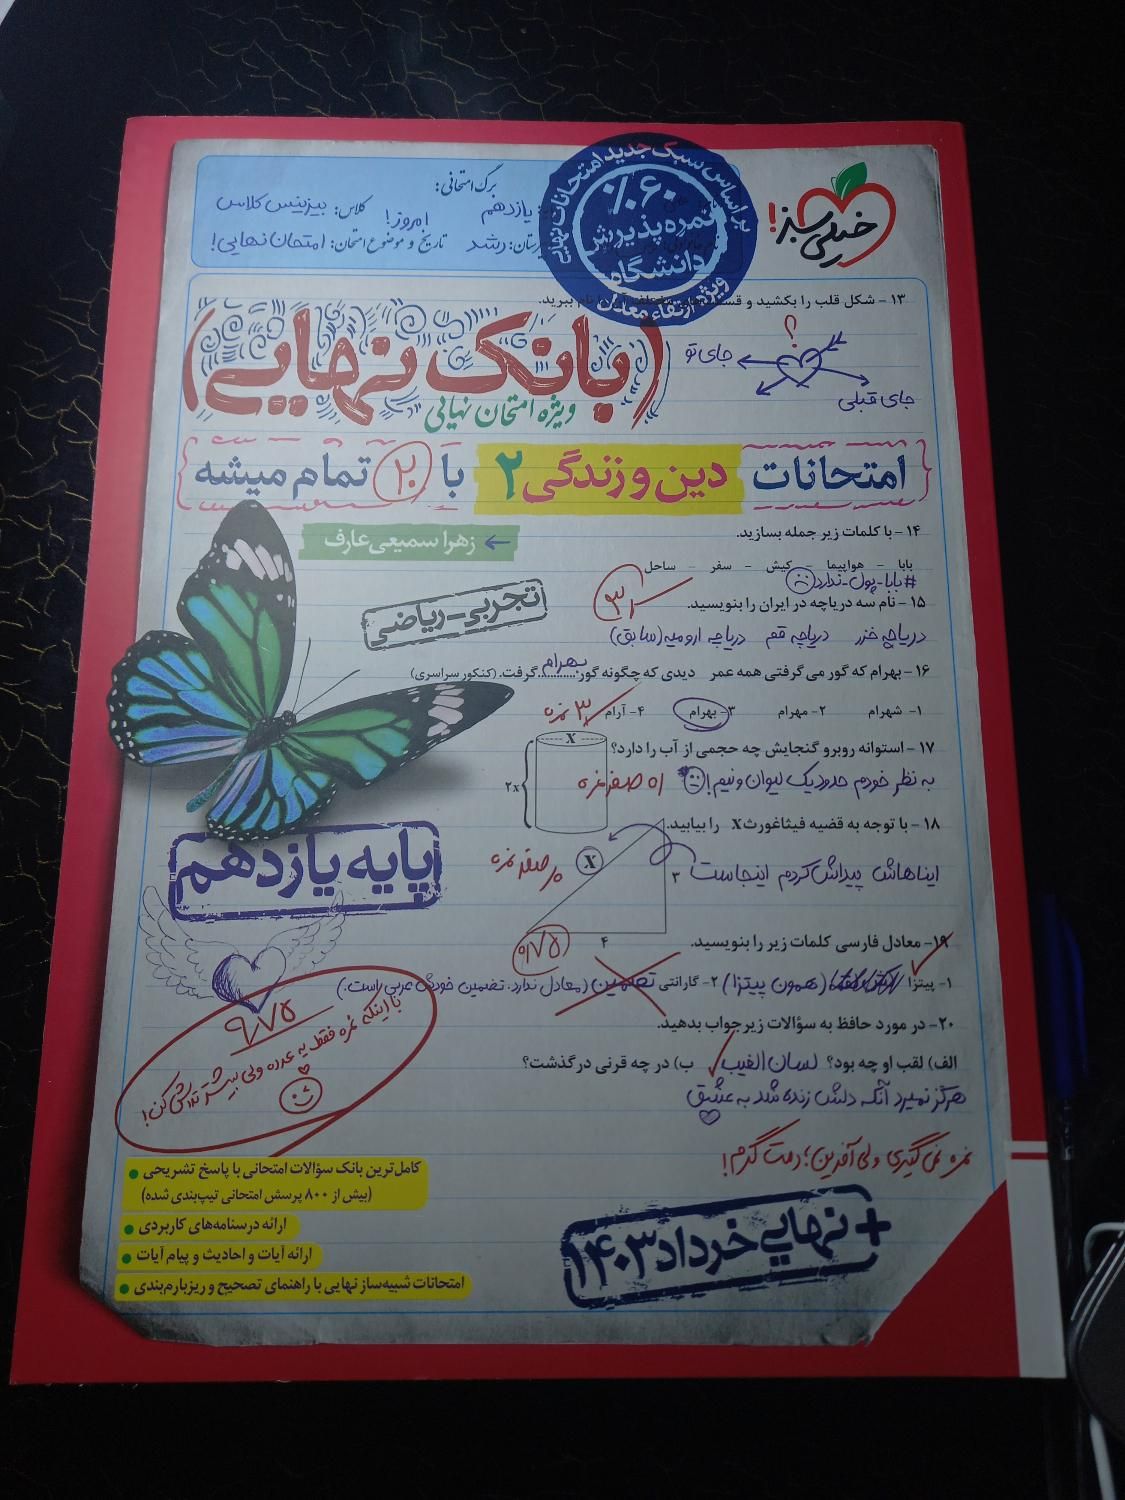 خیلی سبز!
بر اساس سبک جدید امتحانات نهایی
٪۶۰
نمره پذیرش
دانشگاه
ویژه ارتقاء معدل
برگ امتحانی:
یازدهم
کلاس: بیزینس کلاس
رشد
تاریخ و موضوع امتحان: امروز! امتحان نهایی!
۱۳ - شکل قلب را بکشید و قسمت‌های مختلف آن را نام ببرید.
؟
جای تو
جای قبلی
(بانک نهایی)
ویژه امتحان نهایی
امتحانات دین و زندگی ۲ با ۲۰ تمام میشه
زهرا سمیعی عارف
تجربی-ریاضی
۱۴ - با کلمات زیر جمله بسازید.
بابا - هواپیما - کیش - سفر - ساحل
#بابا-پول-ندارد
۱۵ - نام سه دریاچه در ایران را بنویسید.
دریاچه خزر دریاچه قم دریاچه ارومیه (سابق)
۱۶ - بهرام که گور می گرفتی همه عمر دیدی که چگونه گور بهرام گرفت. (کنکور سراسری)
۱- شهرام ۲- مهرام ۳- بهرام ۴- آرام
۳ نمره
۱۷ - استوانه روبرو گنجایش چه حجمی از آب را دارد؟
X
۲x
به نظر خودم حدود یک لیوان و نیم!
صفر نمره
۱۸ - با توجه به قضیه فیثاغورث X را بیابید.
X
۳
۴
ایناهاش پیداش کردم اینجاست
صفر نمره
۹/۷۵
۱۹- معادل فارسی کلمات زیر را بنویسید.
۱- پیتزا (همون پیتزا) ۲- گارانتی تضمین (معادل ندارد. تضمین خودش عربی است.)
۲۰- در مورد حافظ به سؤالات زیر جواب بدهید.
الف) لقب او چه بود؟ لسان الغیب ب) در چه قرنی درگذشت؟
هرگز نمیرد آنکه دلش زنده شد به عشق
نمره نمی گیری ولی آفرین؛ دمت گرم!
پایه یازدهم
۹/۷۵
با اینکه نمره فقط یه عدده ولی بیشتر تلاش کن!
کامل‌ترین بانک سؤالات امتحانی با پاسخ تشریحی
(بیش از ۸۰۰ پرسش امتحانی تیپ‌بندی شده)
ارائه درسنامه‌های کاربردی
ارائه آیات و احادیث و پیام آیات
امتحانات شبیه‌ساز نهایی با راهنمای تصحیح و ریزبارم‌بندی
+ نهایی خرداد ۱۴۰۳